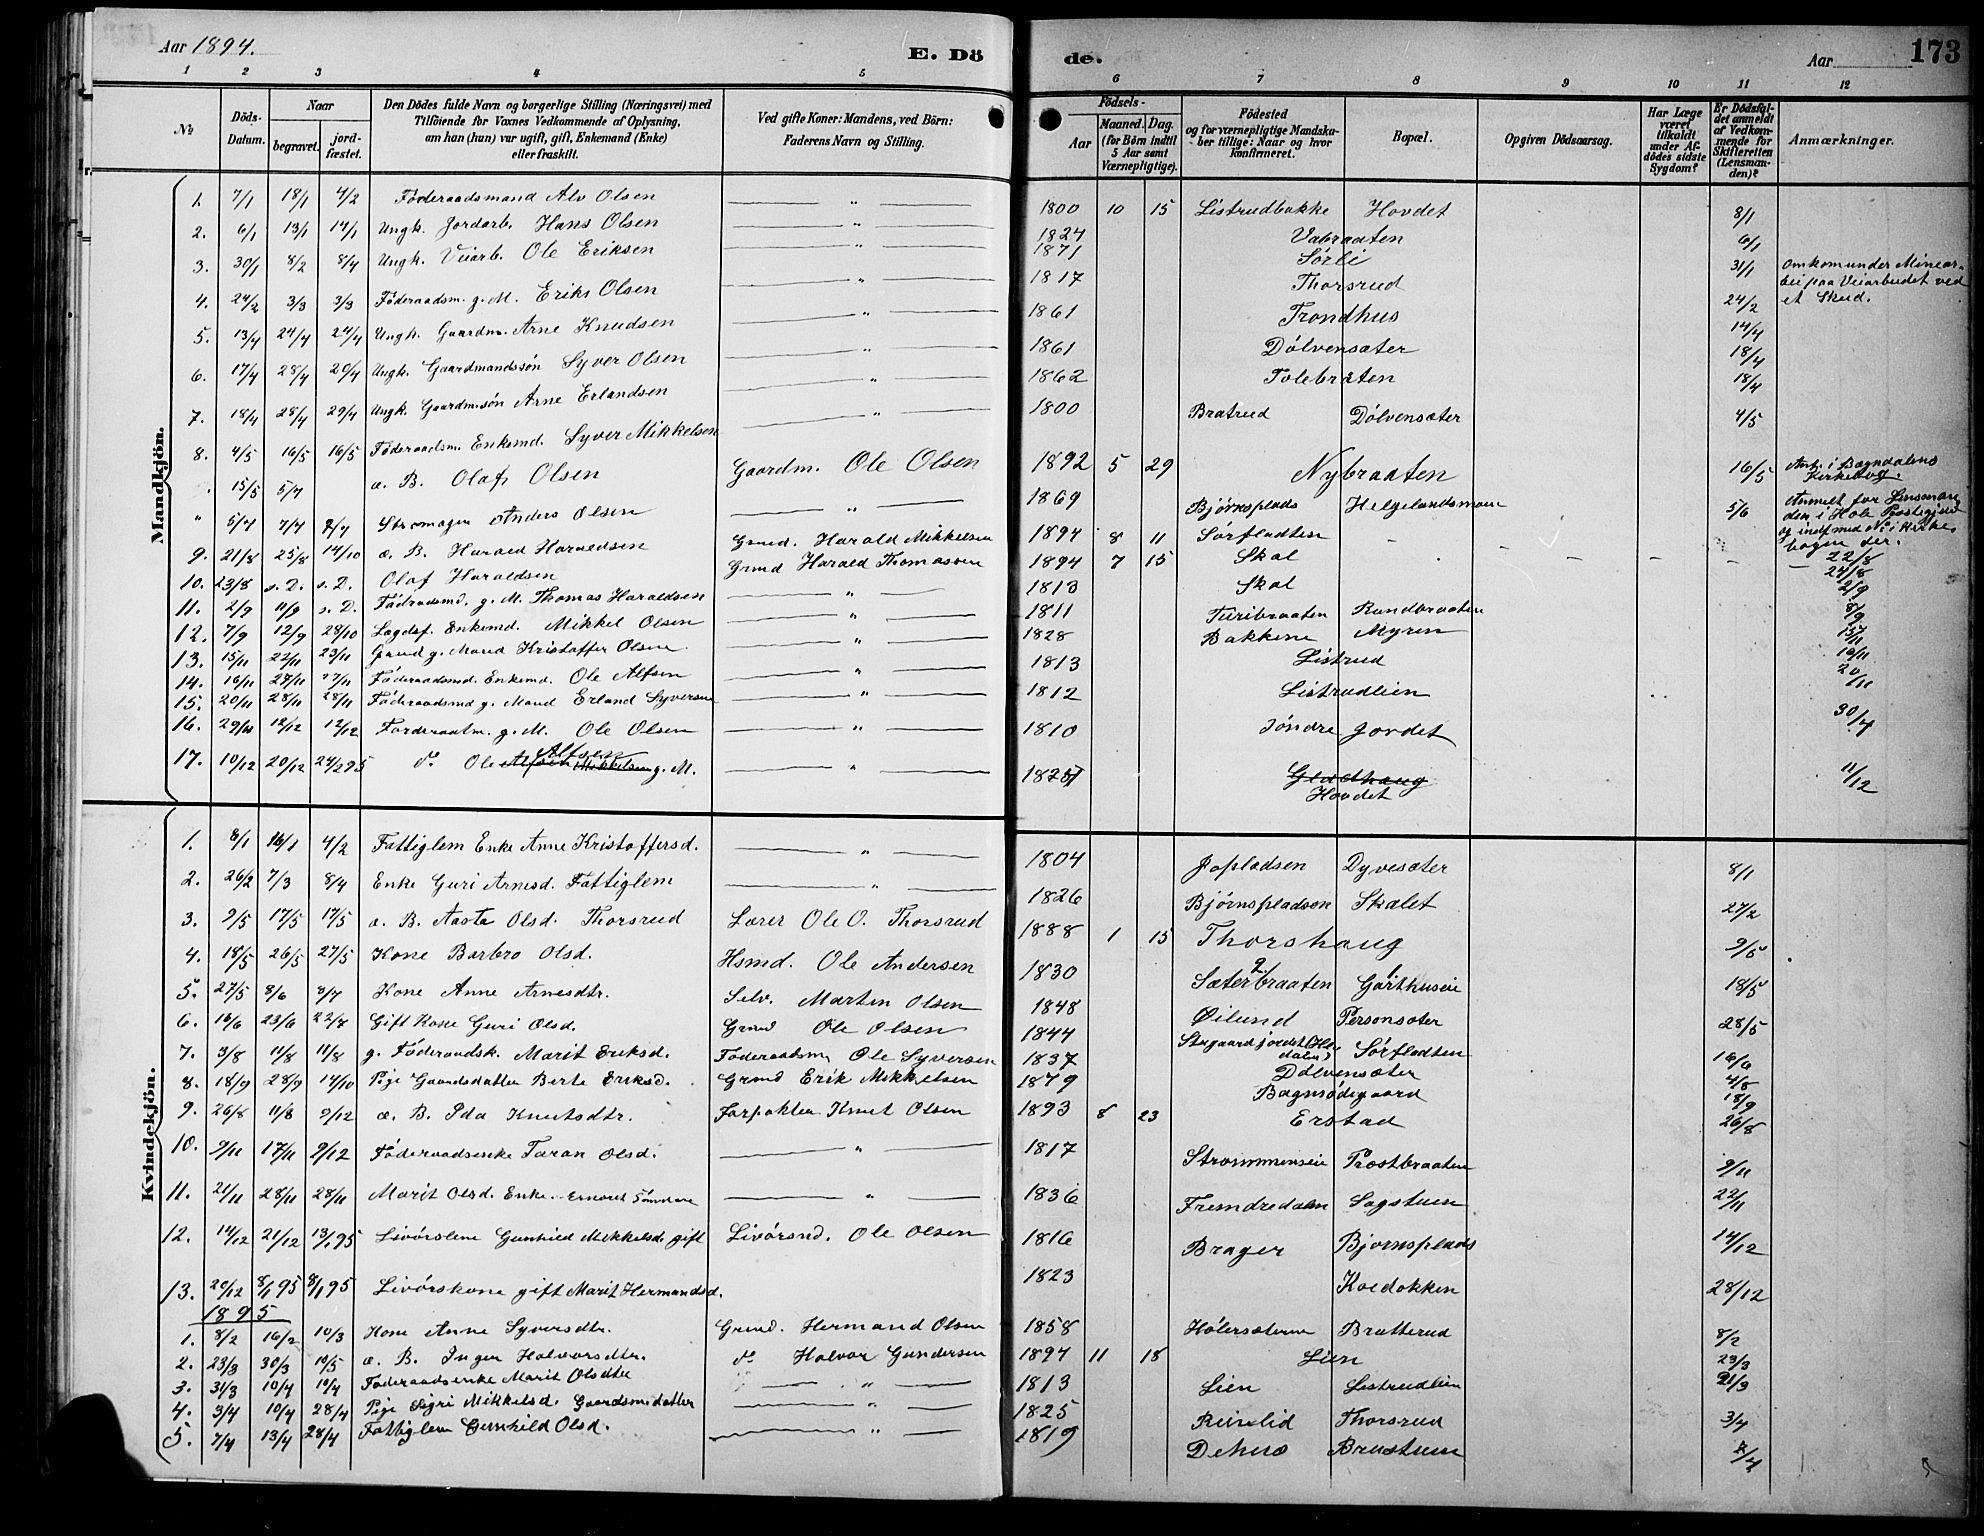 Aar 1894.
E. Dö de.
Aar
173
1 2 3 4 5 6 7 8 9 10 11 12
No
Döds-Datum.
Naar
begravet.
jord-fæstet.
Den Dödes fulde Navn og borgerlige Stilling (Næringsvei) med
Tilföiende for Voxnes Vedkommende af Oplysning,
om han (hun) var ugift, gift, Enkemand (Enke)
eller fraskilt.
Ved gifte Koner: Mandens, ved Börn:
Faderens Navn og Stilling.
Födsels-
Aar
Maaned. Dag.
(for Börn indtil
5 Aar samt
Værnepligtige).
Födested
og for værnepligtige Mandska-
ber tillige: Naar og hvor
konfirmeret.
Bopæl.
Opgiven Dödsaarsag.
Har Læge
været
tilkaldt
under Af-
dödes sidste
Sygdom?
Er Dödsfal-
det anmeldt
af Vedkom-
mende for
Skifteretten
(Lensman-
den)?
Anmærkninger.
Mandkjön.
1. 7/1 18/1 4/2 Föderaadsmand Alv Olsen " 1800 10 15 Listrudbakke Hovdet 8/1
2. 6/1 13/1 14/1 Ungk. Jordarb. Hans Olsen " 1824 Vabraaten 6/1
3. 30/1 8/2 8/4 Ungk. Veiarb. Ole Eriksen " 1871 Sørli 31/1 Omkom under Minear-
bei paa Veiarbeidet ved
et Skud.
4. 24/2 3/3 3/3 Föderaadsm. g. M. Eriks Olsen " 1817 Thorsrud 24/2
5. 13/4 24/4 24/4 Ungk. Gaardm. Arne Knudsen " 1861 Trondhus 14/4
6. 17/4 28/4 20/4 Ungk. Gaardmandssøn Syver Olsen " 1861 Dölvensæter 18/4
7. 18/4 28/4 29/4 Ungk. Gaardm.søn Arne Erlandsen " 1862 Tolebråten 18/4
8. 4/5 16/5 16/5 Föderaadsm. Enkemd. Syver Mikkelsen " 1800 Bratrud Dölvensæter 4/5
15/5 5/4 æ. B. Olaf Olsen Gaardm. Ole Olsen 1892 5 29 Nybraaten 16/5 Anf. i Bagndalens
Kirkebog.
" 5/4 7/4 Skromager Anders Olsen " 1869 Bjørnsplads 5/6 Anmelt for Lensman
den i Hole Prestegjeld
og indf med No i Kirke-
bogen der.
9. 21/8 25/8 14/10 æ. B. Harald Haraldsen Grmd. Harald Mikkelsen 1894 8 11 Sørfladten 22/8
10. 23/8 s. D. s. D. Olaf Haraldsen Grmd Harald Thomassen 1894 7 15 Skal 24/8
11. 2/9 11/9 s. D. Födraadsmd. g. M. Thomas Haraldsen " 1813 Skal 2/9
12. 7/9 12/9 28/10 Lægdsf. Enkemd. Mikkel Olsen " 1811 Turibraaten Rundbraaten 8/9
13. 15/11 22/11 23/11 Grmd g. Mand Kristoffer Olsen " 1828 Bakkene Myren
14. 16/11 27/11 27/11 Föderaadsmd. Enkemd. Ole Alfsen " 1813 Listrud 16/11
15. 20/11 28/11 28/11 Föderaadsmd g. Mand Erland Syversen " 1812 Listrudlien 20/11
16. 29/11 12/12 12/12 Forderaadm. g. M. Ole Olsen " 1810 Jöndre Jordet
17. 10/12 20/12 24/2 95 do Ole Alfsen Mikkelsen Alfsen g. M. " Gladhaug
Hovdet 11/12
Kvindekjön.
1. 8/1 16/1 4/2 Fattiglem Enke Anne Kristoffersd. " 1804 Japladsen Dyvesæter 8/1
2. 26/2 7/3 8/4 Enke Guri Arnesd. Fattiglem " 1826 Bjørnspladsen Skalet 27/2
3. 9/5 17/5 17/5 æ. B. Aasta Olsd. Thorsrud Lærer Ole O. Thorsrud 1888 1 15 Thorshaug 9/5
4. 18/5 26/5 27/5 Kone Barbro Olsd. Hsmd. Ole Andersen 1830 Sæterbraaten Garthuseie 18/5
5. 27/5 8/6 8/7 Kone Anne Arnesdtr. Selv. Martin Olsen 1848 Øilund Personsæter 28/5
6. 16/6 23/6 22/7 Gift Kone Guri Olsd. Grmd Ole Olsen 1844 Stagaardjordet (He-
dalen) Sørfladten 16/6
7. 3/8 11/8 11/8 g. Föderaadsk. Marit Eriksd. Föderaadsm Ole Syversen 1837 Dölvensæter 4/8
8. 18/9 28/9 14/10 Pige Gaardsdatter Berte Eriksd. Grmd Erik Mikkelsen 1879 Bagnsödegaard 18/9
9. 26/8 11/8 9/12 æ. B. Ida Knutsdtr. Forpakter Knut Olsen 1893 8 23 Erstad 26/8
10. 9/11 17/11 9/12 Föderaadsenke Taran Olsd. " 1817 Strømmenseie Prostbraaten 9/11
11. 21/11 28/11 28/11 Marit Olsd. Enke. " 1836 Fremdredalen Sagstuen 22/11
12. 14/12 21/12 13/1 95 Livörslem Gunhild Mikkelsd. gift Livörsmd. Ole Olsen 1816 Brager Bjørnsplads 14/12
13. 20/12 8/1 95 8/1 95 Livörskone gift Marit Hermandsd. 1823 Koldokken 28/12
1895
1. 8/2 16/2 10/3 Kone Anne Syversdtr. Grmd. Hermand Olsen 1858 Hölersæteren Bratterud 8/2
2. 23/3 30/3 10/5 æ. B. Inger Halvorsdtr. do Halvor Gundersen 1894 11 18 Lien 23/3
3. 31/3 10/4 10/4 Föderaadsenke Marit Olsdtr " 1813 Lien Listrudlien 31/3
4. 3/4 10/4 28/4 Pige Sigri Mikkelsd. Gaardsmdatter " 1825 Reinslid Thorsrud 3/4
5. 7/4 13/4 28/4 Fattiglem Gunhild Olsd. " 1819 Dehus Brustuen